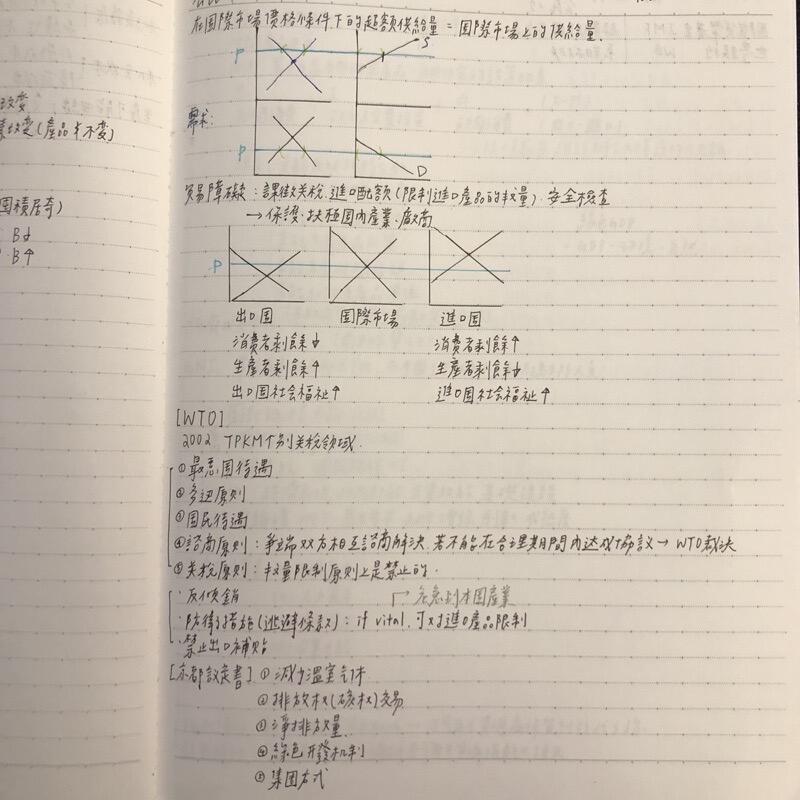 在国際市場價格條件下的超額供給量 = 国際市場上的供給量
P
S
需求:
P
D
改变
改变(產品卡不变)
囤積居奇)
B↓
B↑
貿易障礙: 課徵关稅. 進口配額(限制進口產品的数量). 安全檢查
→ 保護. 扶植国內產業. 廠商
P
出口国 国際市場 進口国
消費者剩餘↓ 消費者剩餘↑
生產者剩餘↑ 生產者剩餘↓
出口国社会福祉↑ 進口国社会福祉↑
[WTO]
2002 TPKM个別关稅領域
①最惠国待遇
②多边原則
③国民待遇
④諮商原則: 爭端双方相互諮商解決. 若不能在合理期間內达成协議 → WTO裁決
⑤关稅原則: 数量限制原則上是禁止的.
·反傾銷
危急到本国產業
·防衛措施(逃避條款): if vital. 可对進口產品限制
·禁止出口補貼
[京都議定書] ①減少溫室气体
②排放权(碳权)交易
③淨排放量
④綠色开發机制
⑤集团方式